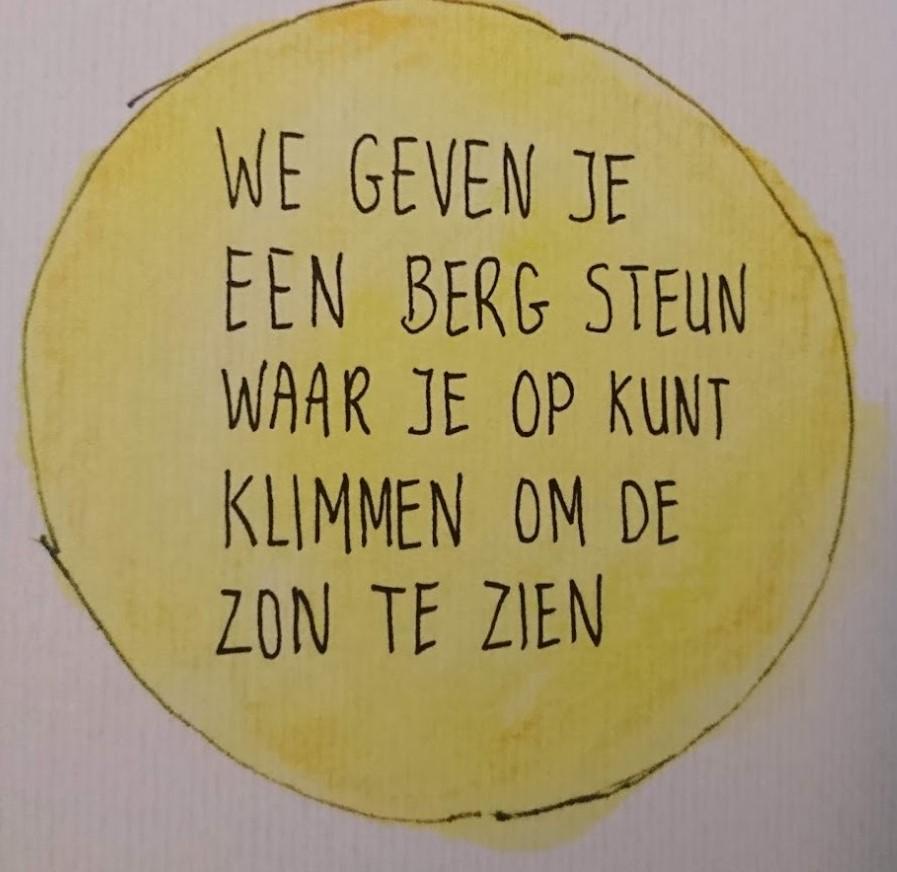 WE GEVEN JE
EEN BERG STEUN
WAAR JE OP KUNT
KLIMMEN OM DE
ZON TE ZIEN